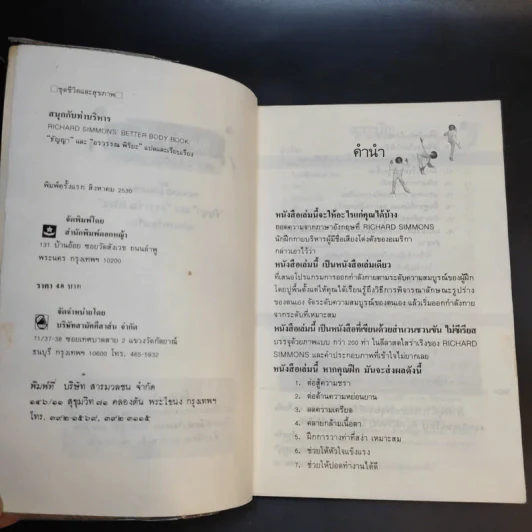 ชุดชีวิตและสุขภาพ
สนุกกับท่าบริหาร
RICHARD SIMMONS' BETTER BODY BOOK
"ธัญญา" และ "อรวรรณ พิริยะ" แปลและเรียบเรียง
พิมพ์ครั้งแรก สิงหาคม 2530
จัดพิมพ์โดย
สำนักพิมพ์ดอกหญ้า
131 บ้านถ้อย ซอยวัดสังเวช ถนนลำพู
พระนคร กรุงเทพฯ 10200
ราคา 40 บาท
จัดจำหน่ายโดย
บริษัทสามัคคีสาส์น จำกัด
71/37-38 ซอยเทศบาลสาย 2 แขวงวัดกัลยาณ์
ธนบุรี กรุงเทพฯ 10600 โทร. 465-5932
พิมพ์ที่ บริษัท สารมวลชน จำกัด
๑๔๖/๑๑ สุขุมวิท ๗๑ คลองตัน พระโขนง กรุงเทพฯ
โทร. ๓๙๒-๑๕๖๙, ๓๙๒-๓๑๑๕
คำนำ
หนังสือเล่มนี้จะให้อะไรแก่คุณได้บ้าง
ถอดความจากภาษาอังกฤษที่ RICHARD SIMMONS
นักฝึกกายบริหารผู้มีชื่อเสียงโด่งดังของอเมริกา
กล่าวเอาไว้ว่า
หนังสือเล่มนี้ เป็นหนังสือเล่มเดียว
ที่เสนอโปรแกรมการออกกำลังกายตามระดับความสมบูรณ์ของผู้ฝึก
โดยปูพื้นตั้งแต่ให้คุณได้เรียนรู้ถึงวิธีการพิจารณาลักษณะรูปร่าง
ของตนเอง จัดระดับความสมบูรณ์ของตนเอง แล้วเริ่มออกกำลังกาย
จากระดับที่เหมาะสม
หนังสือเล่มนี้ เป็นหนังสือที่เขียนด้วยสำนวนชวนขัน ไม่ซีเรียส
บรรจุด้วยภาพแบบ กว่า 200 ท่า ในลีลาสดใสร่าเริงของ RICHARD
SIMMONS และคำประกอบภาพที่เข้าใจไม่ยากเลย
หนังสือเล่มนี้ หากคุณฝึก มันจะส่งผลดังนี้
1. ต่อสู้ความชรา
2. ต่อต้านความหย่อนยาน
3. ลดความเครียด
4. คลายกล้ามเนื้อตา
5. ฝึกการวางท่าที่สง่า เหมาะสม
6. ช่วยให้หัวใจแข็งแรง
7. ช่วยให้ปอดทำงานได้ดี